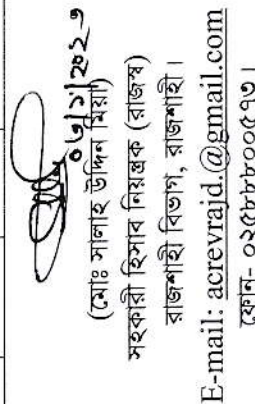 ০৩/১/২০২৩
(মোঃ সালাহ উদ্দিন মিয়া)
সহকারী হিসাব নিয়ন্ত্রক (রাজস্ব)
রাজশাহী বিভাগ, রাজশাহী।
E-mail: acrevrajd.@gmail.com
ফোন- ০২৫৮৮৮০০৫৭৩।